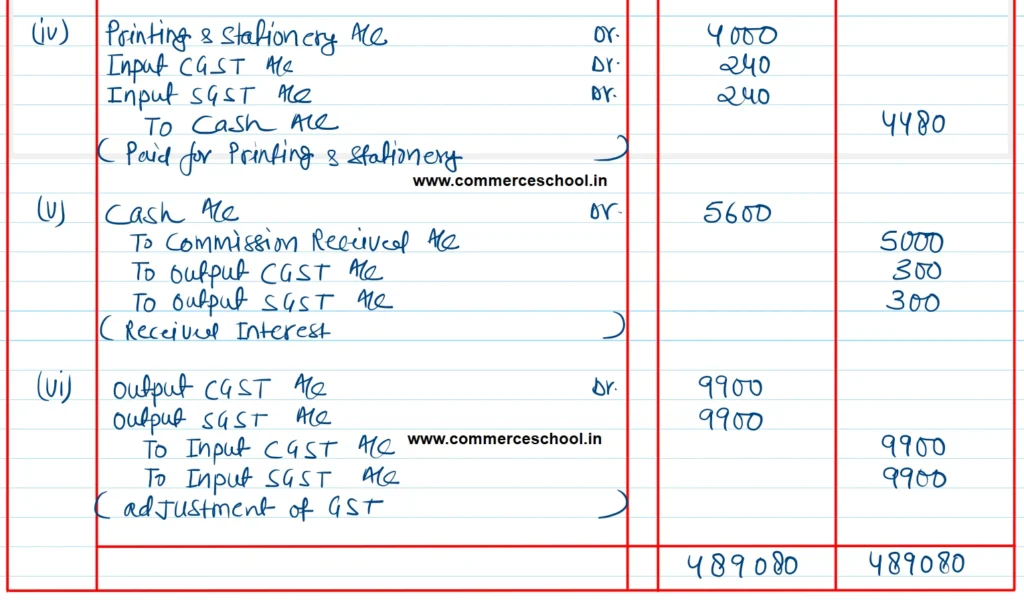 (iv) Printing & Stationery A/c Dr. 4000
Input CGST A/c Dr. 240
Input SGST A/c Dr. 240
To Cash A/c 4480
( Paid for Printing & Stationery )
www.commerceschool.in
(v) Cash A/c Dr. 5600
To Commission Received A/c 5000
To Output CGST A/c 300
To Output SGST A/c 300
( Received Interest )
(vi) Output CGST A/c Dr. 9900
Output SGST A/c 9900
www.commerceschool.in
To Input CGST A/c 9900
To Input SGST A/c 9900
( adjustment of GST )
489080 489080